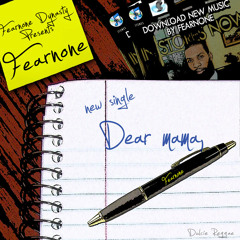 Fearnone Dynasty
Presents
Fearnone
DOWNLOAD NEW MUSIC
BY FEARNONE
new single
Dear mama,
Fearnone